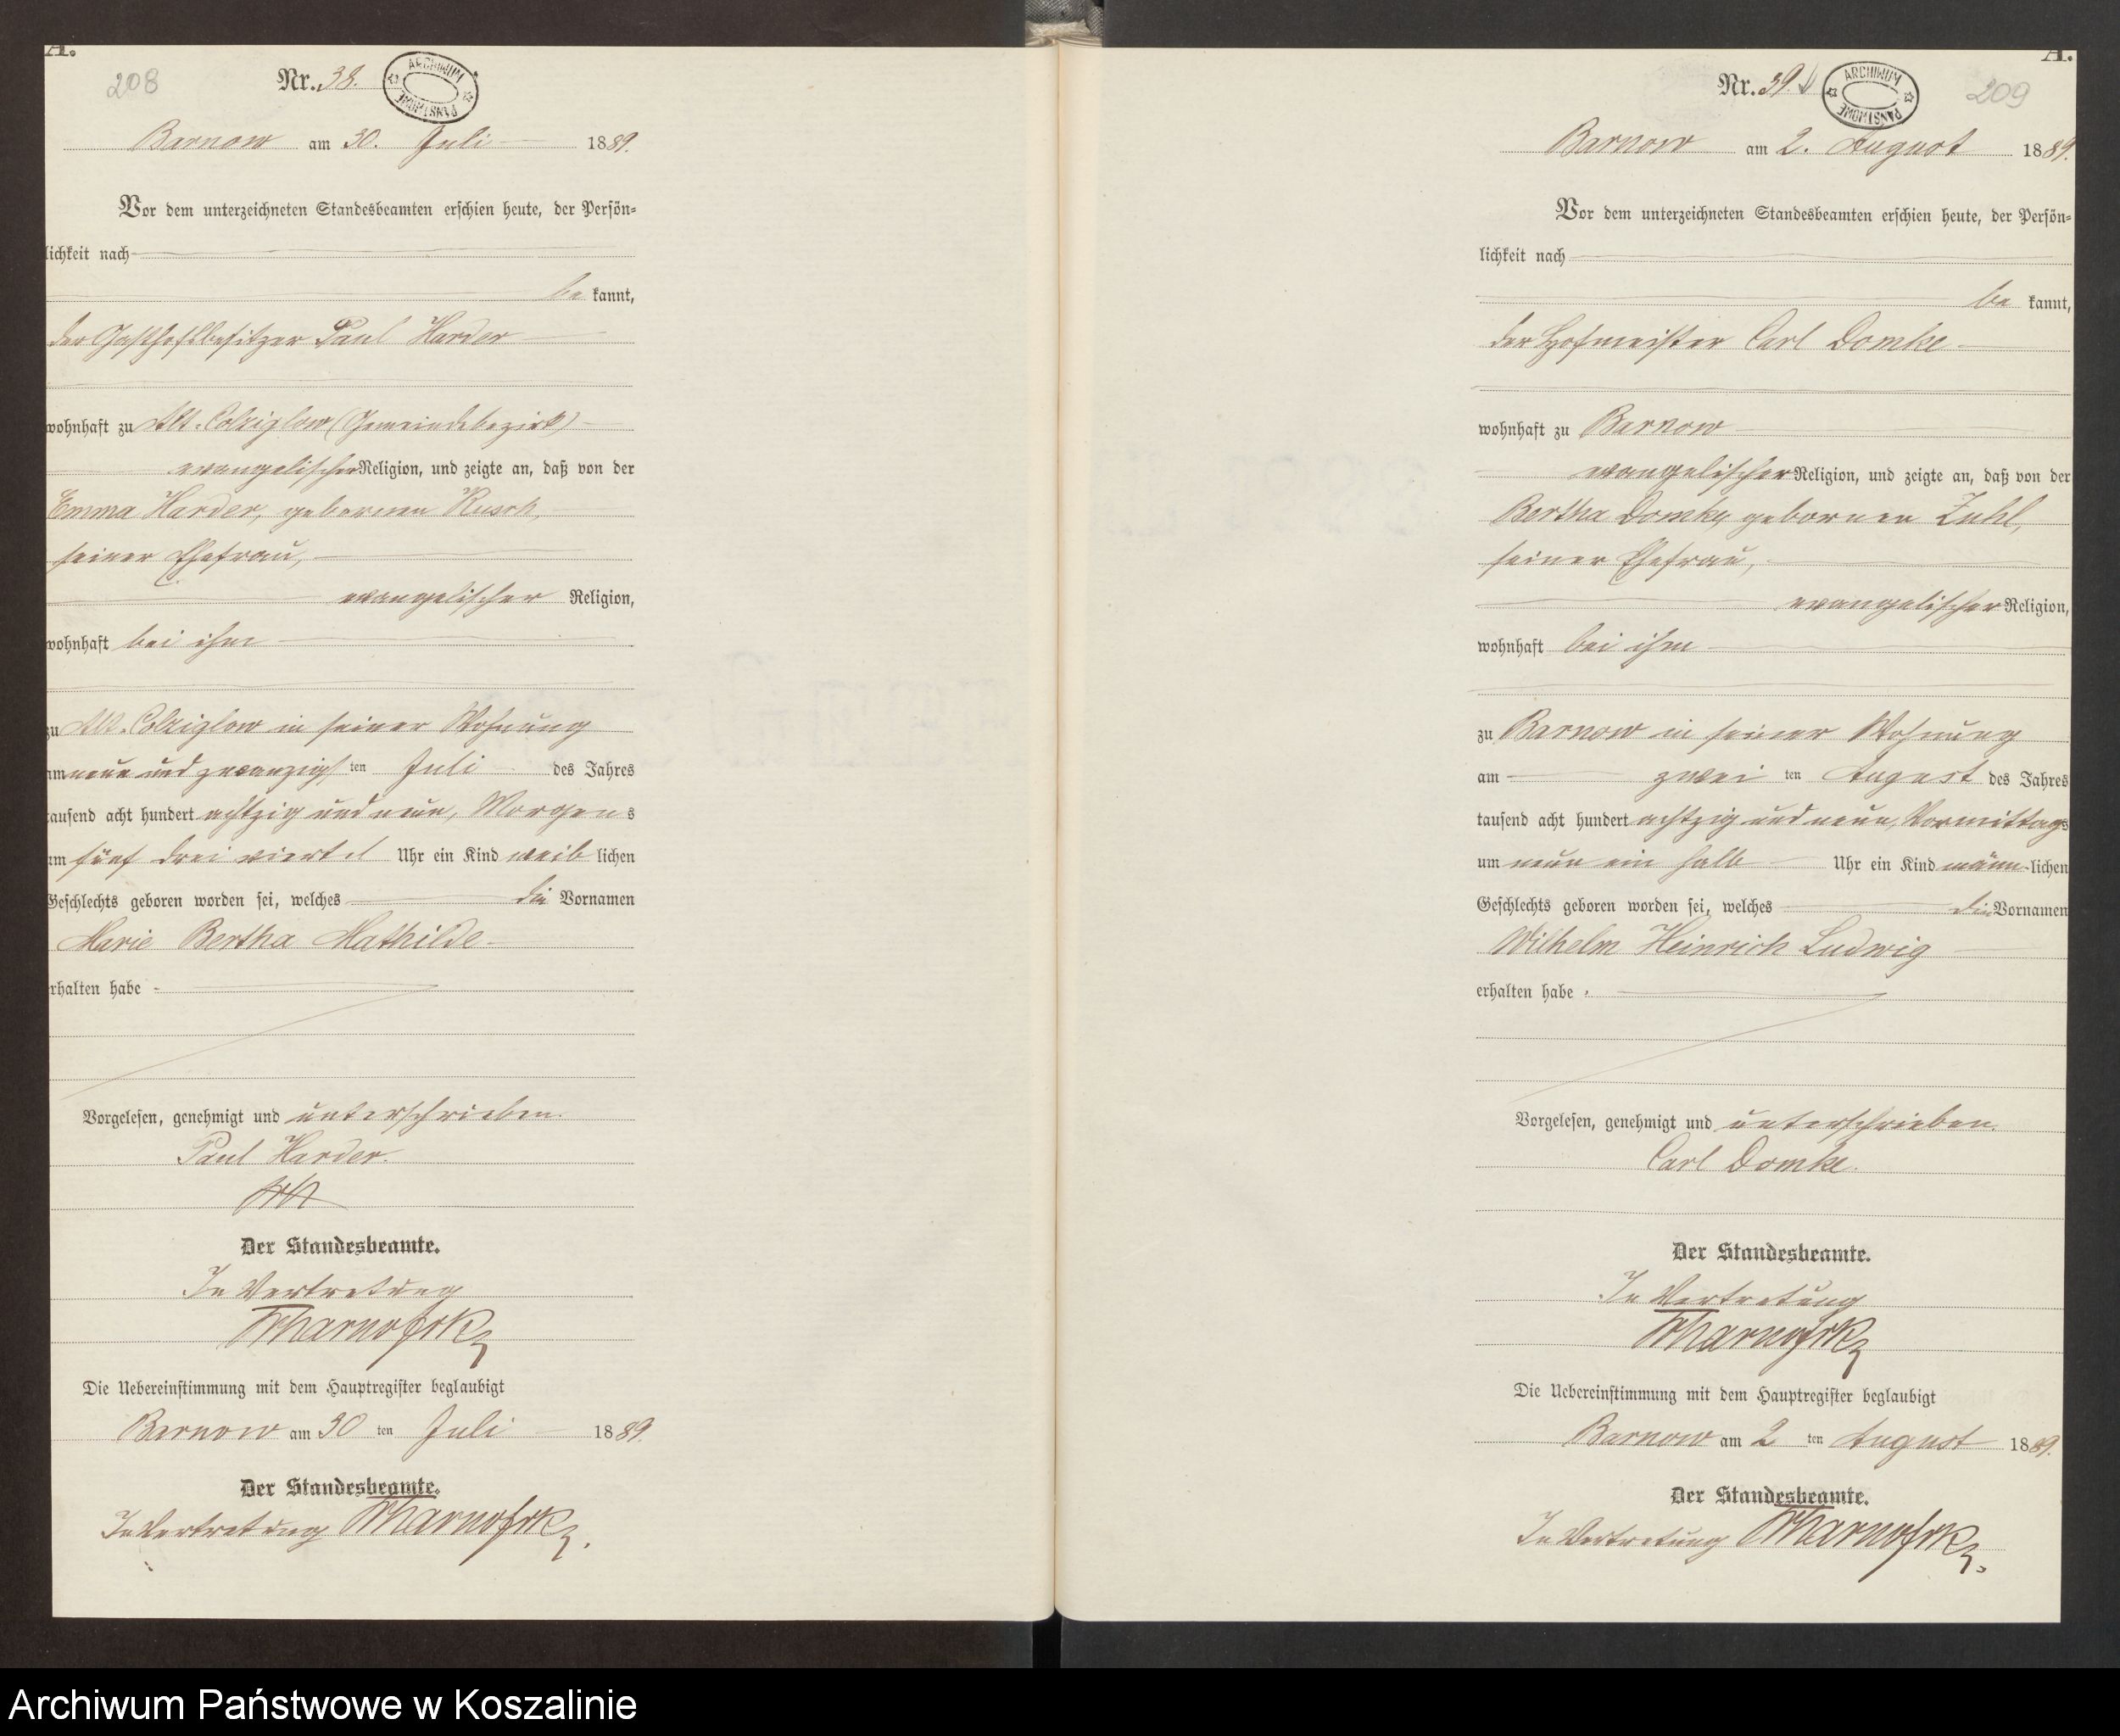 A.
208
Nr. 38.
ARCHIWUM PAŃSTWOWE
Barnow am 30. Juli 1889.
Vor dem unterzeichneten Standesbeamten erschien heute, der Persön-
lichkeit nach
be kannt,
der Gasthofsbesitzer Paul Harder
wohnhaft zu Alt-Colziglow (Gemeindebezirk)
evangelischer Religion, und zeigte an, daß von der
Emma Harder, geborenen Kusch,
seiner Ehefrau,
evangelischer Religion,
wohnhaft bei ihm
zu Alt-Colziglow in seiner Wohnung
am neun und zwanzigsten Juli des Jahres
tausend acht hundert achtzig und neun, Morgens
um fünf drei viertel Uhr ein Kind weiblichen
Geschlechts geboren worden sei, welches die Vornamen
Marie Bertha Mathilde
erhalten habe
Vorgelesen, genehmigt und unterschrieben.
Paul Harder.
Der Standesbeamte.
In Vertretung
Die Uebereinstimmung mit dem Hauptregister beglaubigt
Barnow am 30 ten Juli 1889.
Der Standesbeamte.
In Vertretung
A.
209
Nr. 39.
ARCHIWUM PAŃSTWOWE
Barnow am 2. August 1889.
Vor dem unterzeichneten Standesbeamten erschien heute, der Persön-
lichkeit nach
be kannt,
der Hofmeister Carl Domke
wohnhaft zu Barnow
evangelischer Religion, und zeigte an, daß von der
Bertha Domke, geborenen Zuhl,
seiner Ehefrau,
evangelischer Religion,
wohnhaft bei ihm
zu Barnow in seiner Wohnung
am zwei ten August des Jahres
tausend acht hundert achtzig und neun, Vormittags
um neun ein halb Uhr ein Kind männ-lichen
Geschlechts geboren worden sei, welches die Vornamen
Wilhelm Heinrich Ludwig
erhalten habe.
Vorgelesen, genehmigt und unterschrieben.
Carl Domke.
Der Standesbeamte.
In Vertretung
Die Uebereinstimmung mit dem Hauptregister beglaubigt
Barnow am 2 ten August 1889.
Der Standesbeamte.
In Vertretung
Archiwum Państwowe w Koszalinie